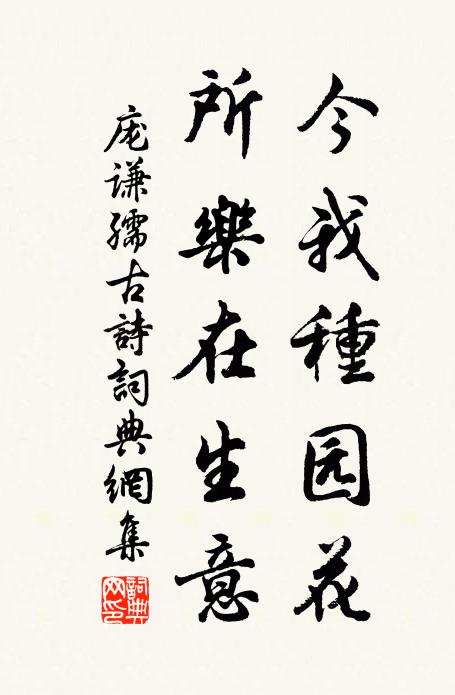 今我種园花
所樂在生意
庞谦孺古詩詞典網集
詞典网印